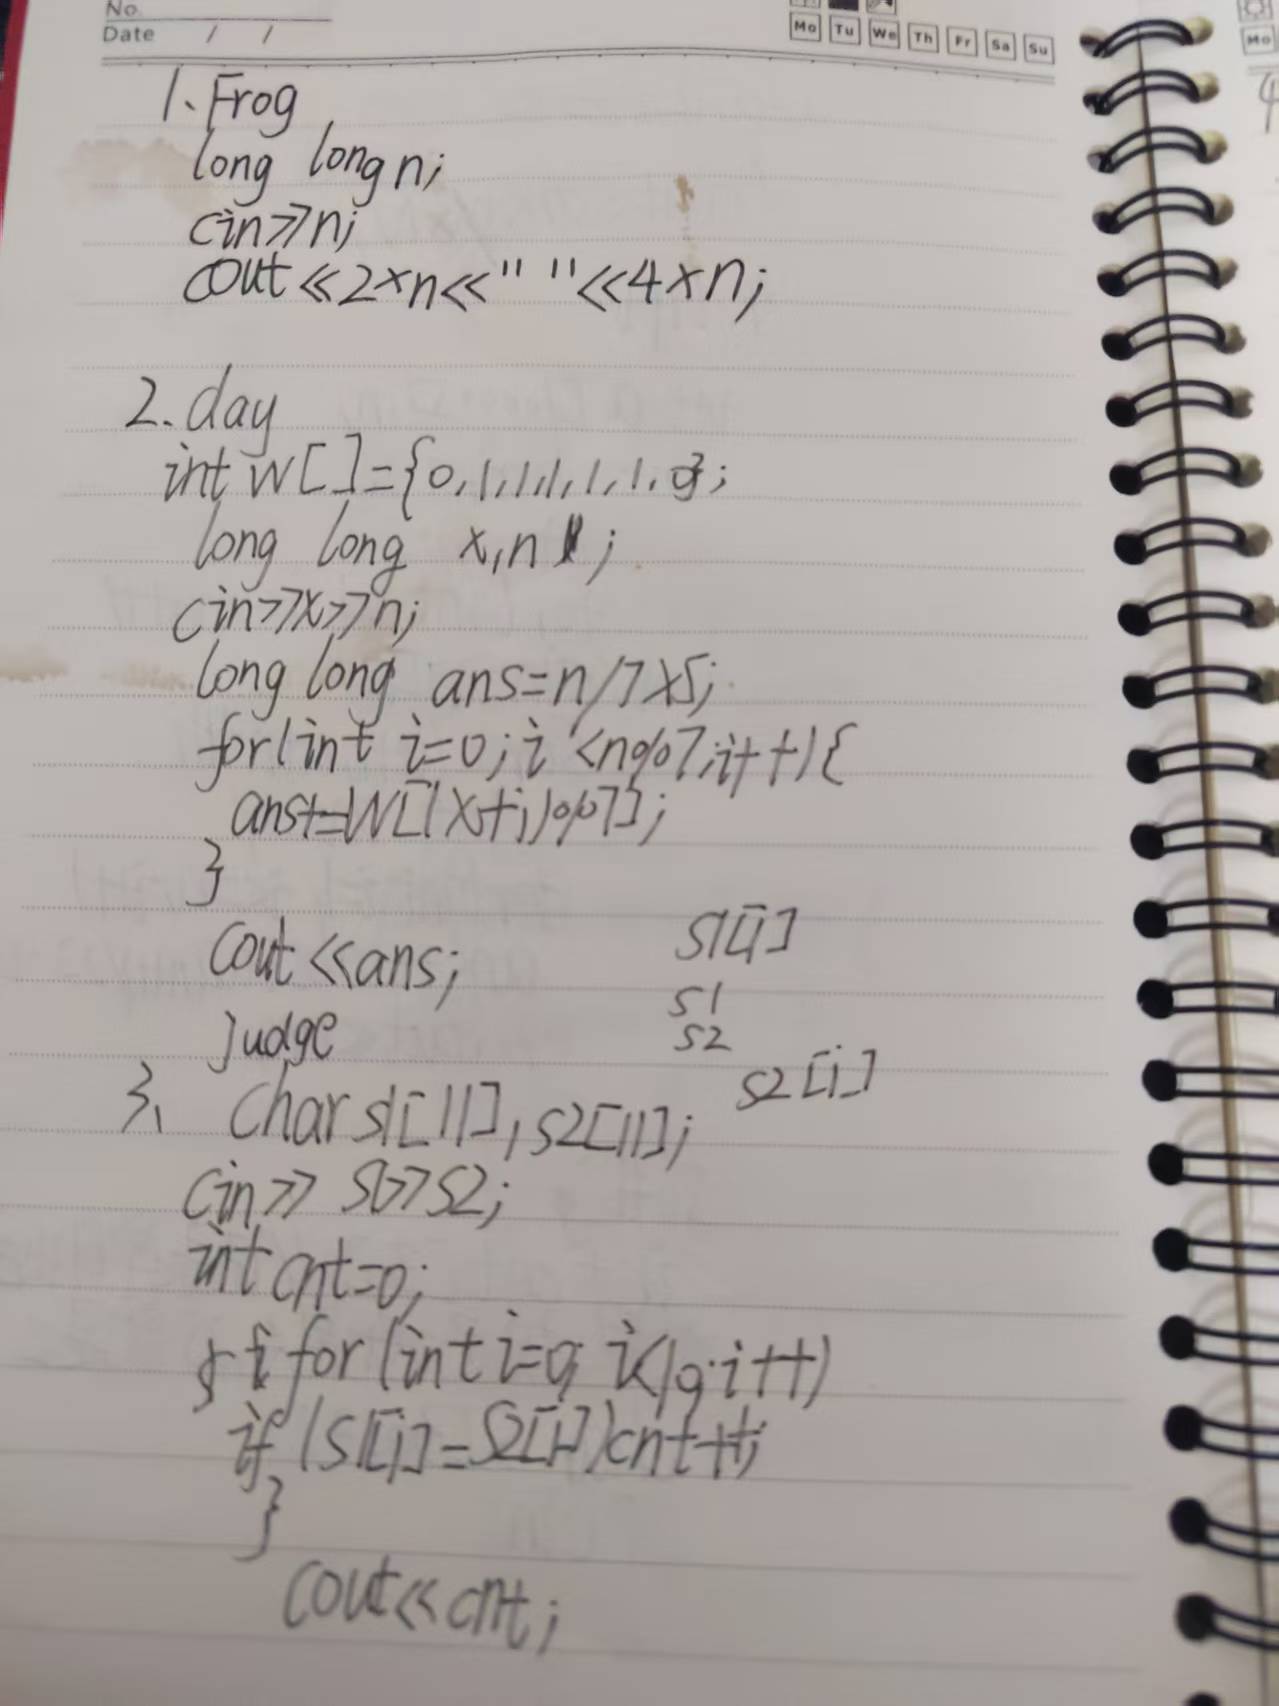 No.
Date / /
Mo Tu We Th Fr Sa Su
Mo
1、Frog
long long n;
cin>>n;
cout<<2×n<<" "<<4×n;
2.day
int w[]={0,1,1,1,1,1,0};
long long x,n;
cin>>x>>n;
long long ans=n/7×5;
for(int i=0;i<n%7;i++){
ans+=w[(x+i)%7];
}
cout<<ans;
s1[i]
s1
s2
judge
s2[i]
3、char s1[11],s2[11];
cin>>s1>>s2;
int cnt=0;
for(int i=0;i<10;i++)
if(s1[i]=s2[i])cnt++;
}
cout<<cnt;